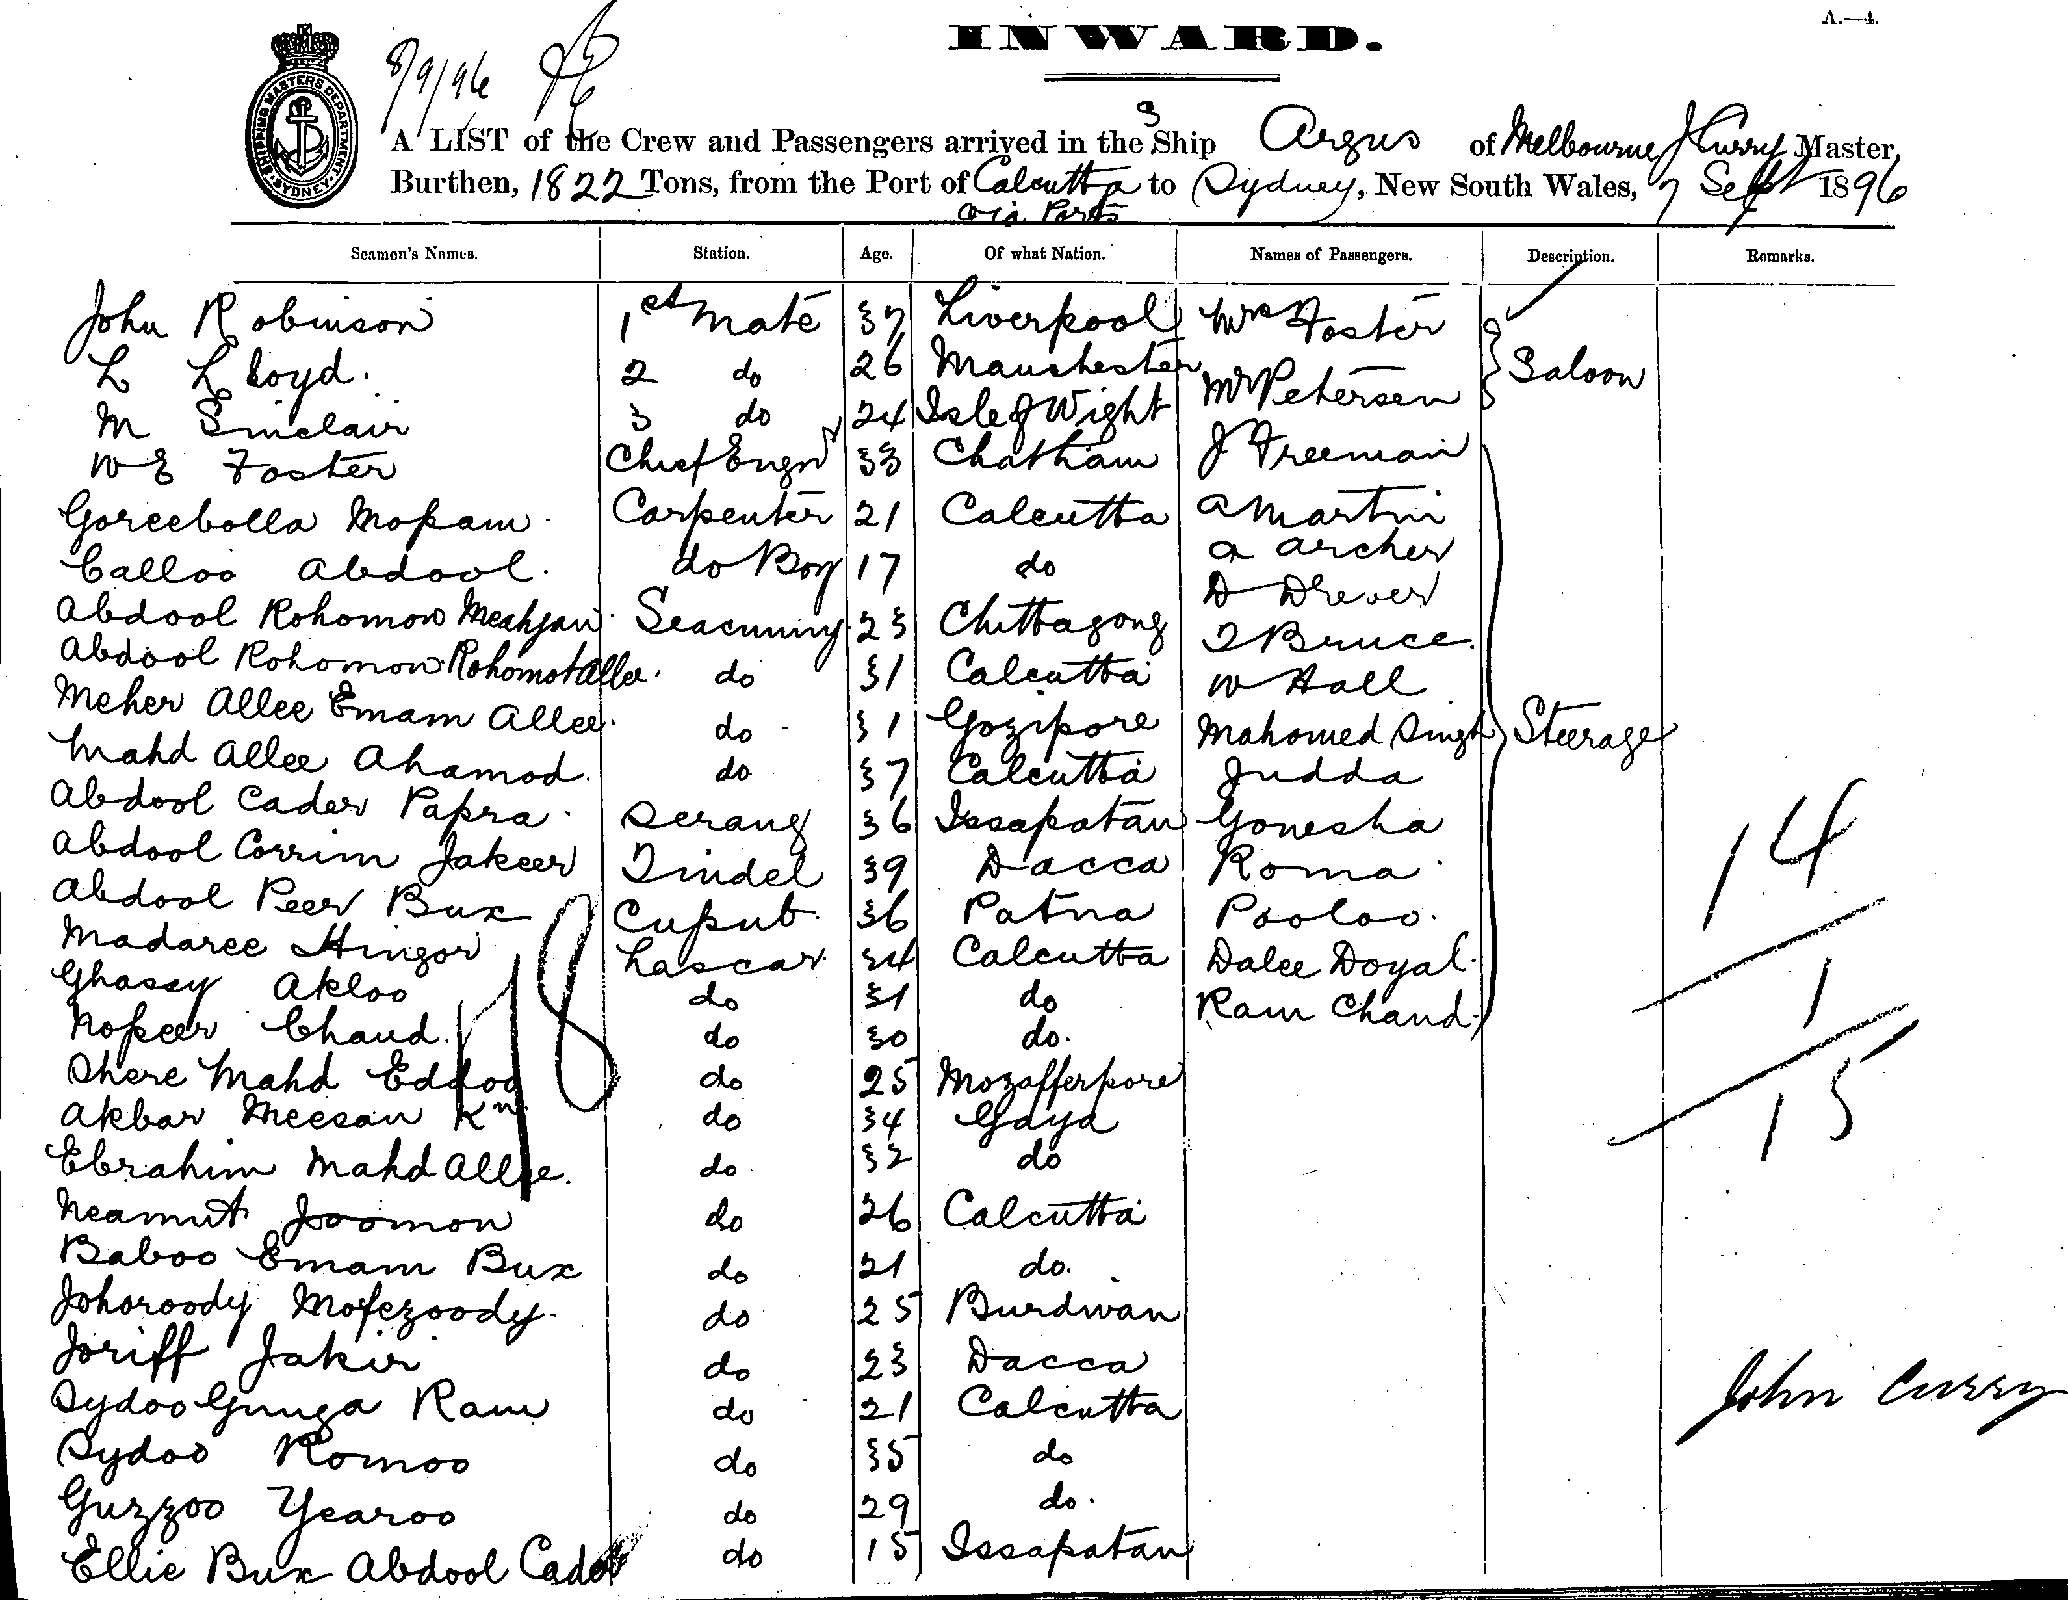 A.—4.
INWARD.
8/9/96
SHIPPING MASTERS DEPARTMENT SYDNEY
A LIST of the Crew and Passengers arrived in the S Ship Argus of Melbourne J Curry Master,
Burthen, 1822 Tons, from the Port of Calcutta to Sydney, New South Wales, 7 Sept 1896
via Ports
Seamen's Names. Station. Age. Of what Nation. Names of Passengers. Description. Remarks.
John Robinson 1st Mate 37 Liverpool Mrs Foster
L Lloyd. 2 do 26 Manchester Mr Petersen Saloon
M Sinclair 3 do 24 Isle of Wight
W E Foster Chief Engnr 33 Chatham J Freeman
Goreebolla Mopam Carpenter 21 Calcutta A Martin
Calloo Abdool. do Boy 17 do A Archer
D Drever
Abdool Rohomon Meahjan Seacunny 23 Chittagong T Bruce
Abdool Rohomon Rohomot Allee. do 31 Calcutta W Hall
Meher Allee Emam Allee. do 31 Gozipore Mahomed Singh Steerage
Mahd Allee Ahamod. do 37 Calcutta Judda
Abdool Cader Papra. Serang 36 Issapatan Gonesha
Abdool Corrim Jakeer Tindel 39 Dacca Roma
Abdool Peer Bux Cupub. 36 Patna Pooloo.
Madaree Hingor Lascar 34 Calcutta Dalee Doyal.
Ghassy Akloo do 31 do Ram Chand.
Nopeer Chand. do 30 do.
Shere Mahd Eddoo do 25 Mozafferpore
Akbar Meesan Kn do 34 Gaya
Ebrahim Mahd Allee. do 32 do
Neamut Joomon do 26 Calcutta
Baboo Emam Bux do 21 do.
Johoroody Mofezoody. do 25 Burdwan
Joriff Jakir do 23 Dacca
Sydoo Gunga Ram do 21 Calcutta
Sydoo Romoo do 35 do
Guzzoo Yearoo do 29 do.
Ellie Bux Abdool Cader do 15 Issapatan
18
14
1
15
John Curry